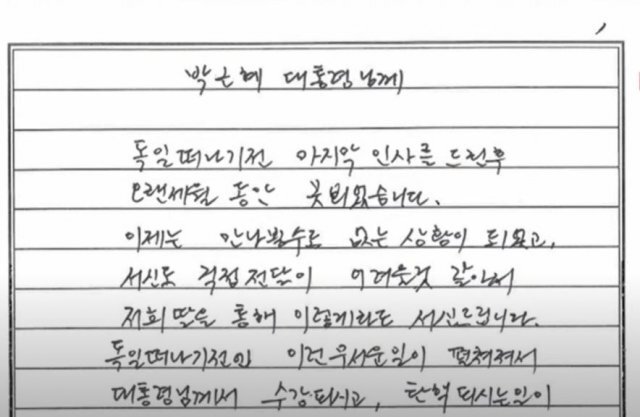 박근혜 대통령님께
독일떠나기전 마지막 인사를 드린후
오랜세월 동안 못뵈었습니다.
이제는 만나볼수도 없는 상황이 되었고,
서신도 직접전달이 어려울것 같아서
저희 딸을 통해 이렇게라도 서신드립니다.
독일떠나기전인 이런무서운일이 펼쳐져서
대통령님께서 수감되시고, 탄핵되시는일이